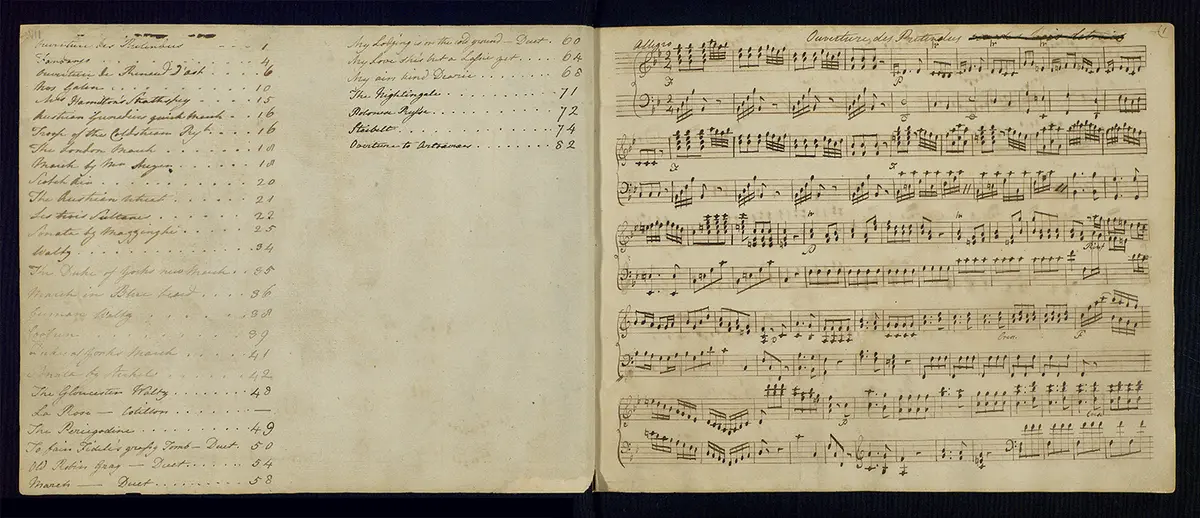 Ouverture des Pretendus - - - 1
Fandango . . . . 4
Ouverture de Renaud d'ast . . 6
10
Mrs Hamiltons Strathspey . . . . 15
Russian Grenadiers quick March - 16
Troop of the Coldstrean Rgt. . . . 16
The London March . . . . 18
March by Mrs . . . . 18
Scotch Air . . . . . . . 20
The Russian . . . . . 21
Les trois Sultanes . . . . . 22
Sonata by Mazzinghi . . . . 25
Waltz . . . . . . . . 34
The Duke of Yorks new March . . 35
March in Blue beard . . . . 36
German Waltz . . . . . 38
39
Duke of Yorks March . . . . 41
by Steibelt . . . . . 42
The Gloucester Waltz . . . . . 48
La Rose — Cotillon . . . . . . —
The Perigordine . . . . . . . 49
To fair Fidele's grassy Tomb — Duet . 50
Old Robin Gray — Duet . . . . . 54
March — Duet . . . . . . 58
My Lodging is on the cold ground — Duet . 60
My Love she's but a Lassie yet . . . . 64
My ain kind Dearie . . . . . . . 68
The Nightingale . . . . . . . . . 71
Polonea Russe . . . . . . . . . 72
Steibelt . . . . . . . . . . . 74
Overture to Artaxerxes . . . . . . . 82
Allegro
Ouverture des Pretendus
1